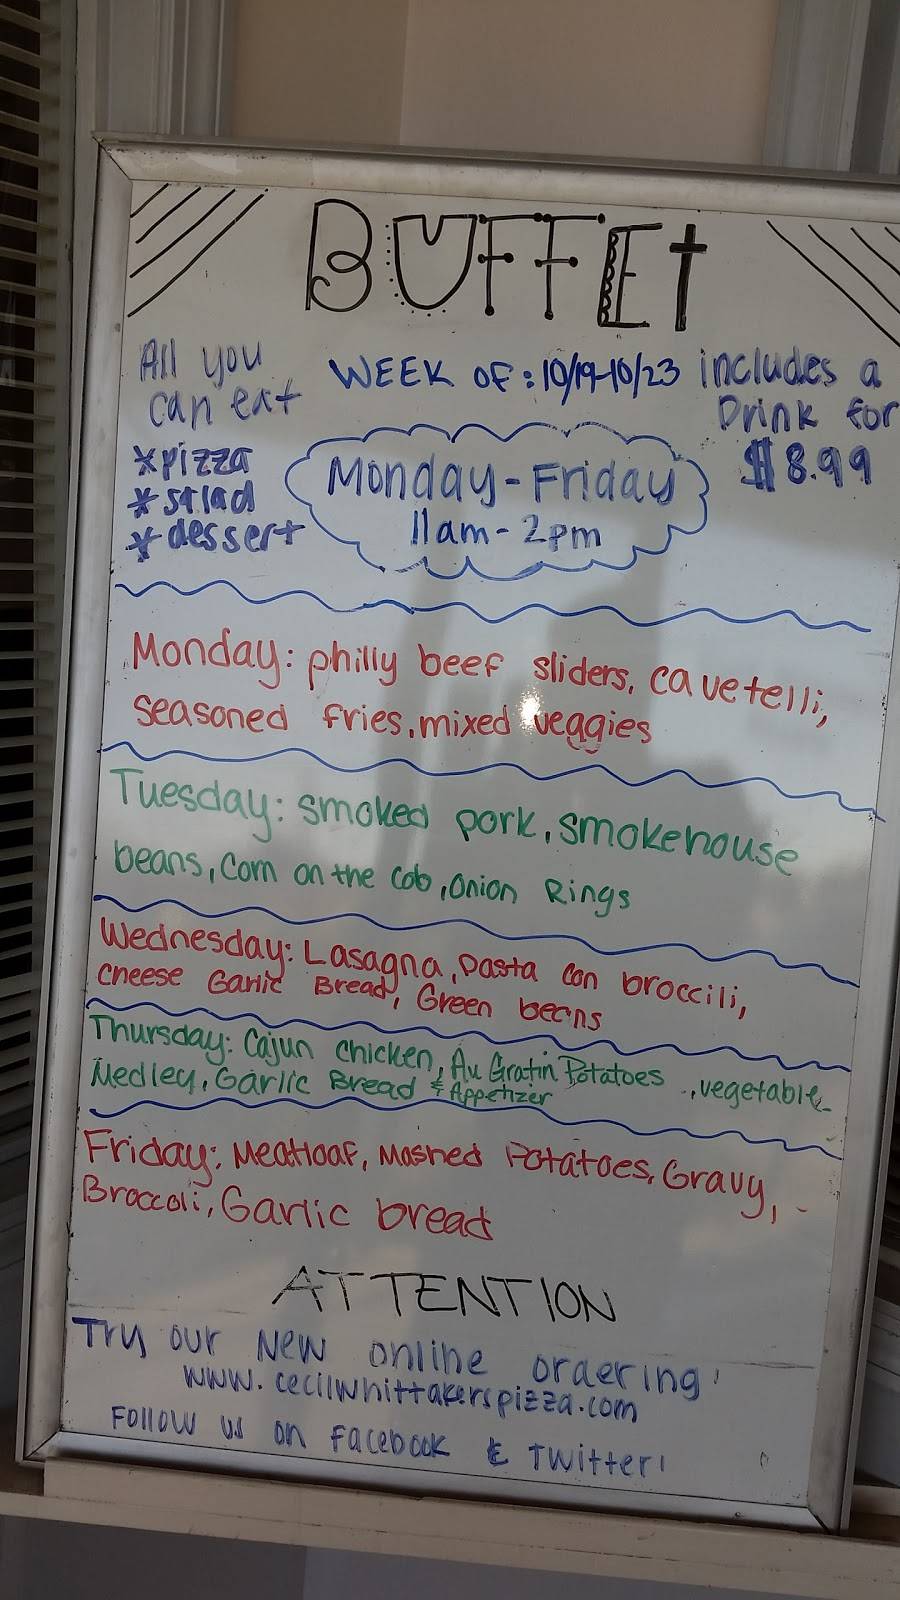 BUFFET
All you
can eat
*pizza
*salad
*dessert
WEEK OF: 10/19-10/23
includes a
Drink for
$8.99
Monday-Friday
11am-2pm
Monday: philly beef sliders, cavetelli,
seasoned fries, mixed veggies
Tuesday: smoked pork, smokehouse
beans, corn on the cob, onion Rings
Wednesday: Lasagna, pasta con broccili,
cheese Garlic Bread, Green beans
Thursday: Cajun chicken, Au Gratin Potatoes, vegetable
Medley, Garlic Bread & Appetizer
Friday: Meatloaf, Mashed Potatoes, Gravy,
Broccoli, Garlic bread
ATTENTION
Try our NEW online ordering!
www.cecilwhittakerspizza.com
Follow us on Facebook & Twitter!